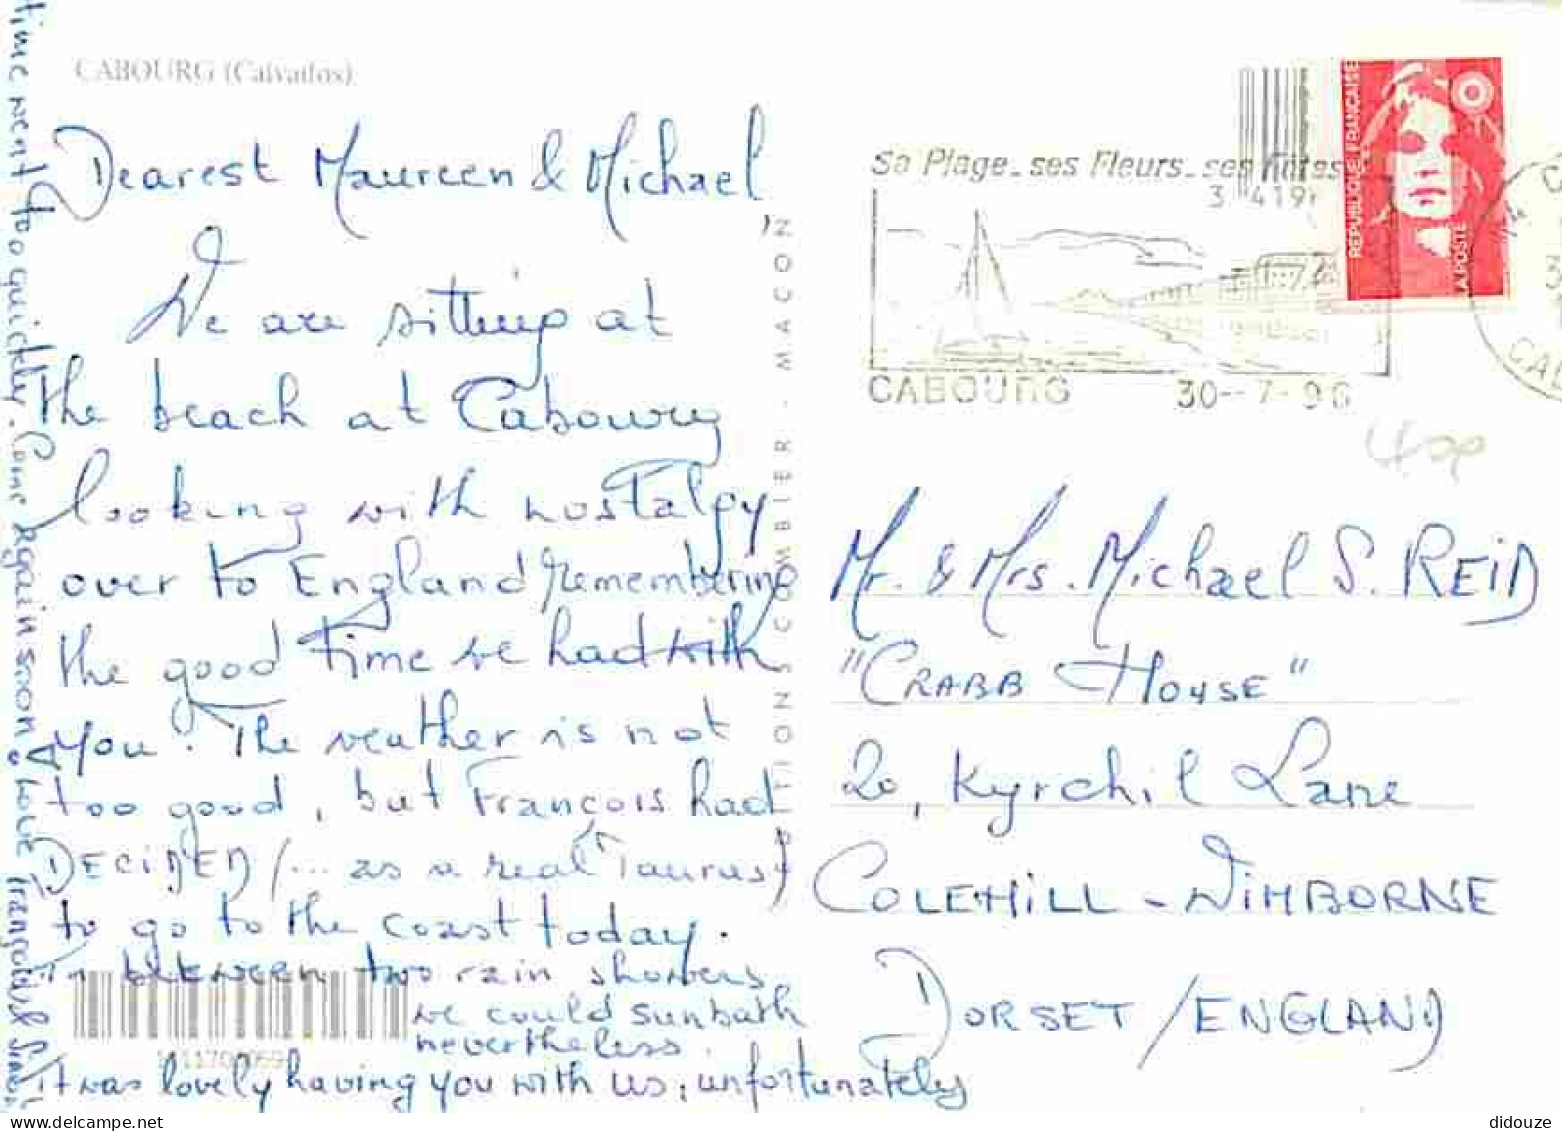 CABOURG (Calvados)
Dearest Maureen & Michael,
We are sitting at
the beach at Cabourg
looking with nostalgy
over to England remembering
the good time we had with
you. The weather is not
too good, but François had
DECIDED (... as a real Taurus)
to go to the coast today.
In between two rain showers
we could sunbath
nevertheless.
it was lovely having you with us; unfortunately
time went too quickly. Come again soon, Love François &
EDITIONS COMBIER - MACON
Sa Plage_ ses Fleurs_ ses Fêtes
CABOURG 30--7-96
3 419
REPUBLIQUE FRANÇAISE
LA POSTE
40p
Mr. & Mrs. Michael S. REID
"CRABB HOUSE"
20, Kyrchil Lane
COLEHILL - WIMBORNE
DORSET / ENGLAND
delcampe.net
didouze